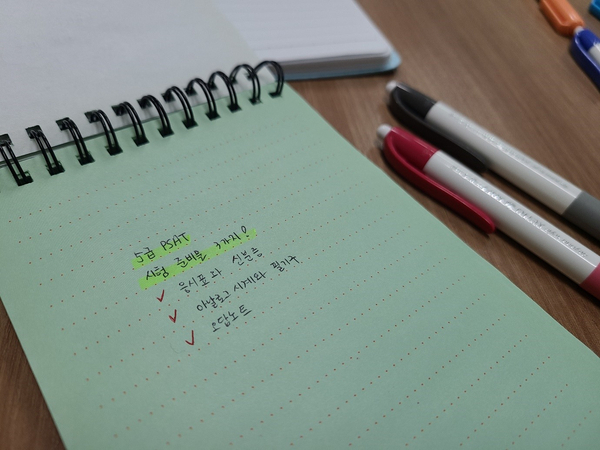 5급 PSAT
시험 준비물 3가지!
✓ 응시표와 신분증
✓ 아날로그 시계와 필기구
✓ 오답노트